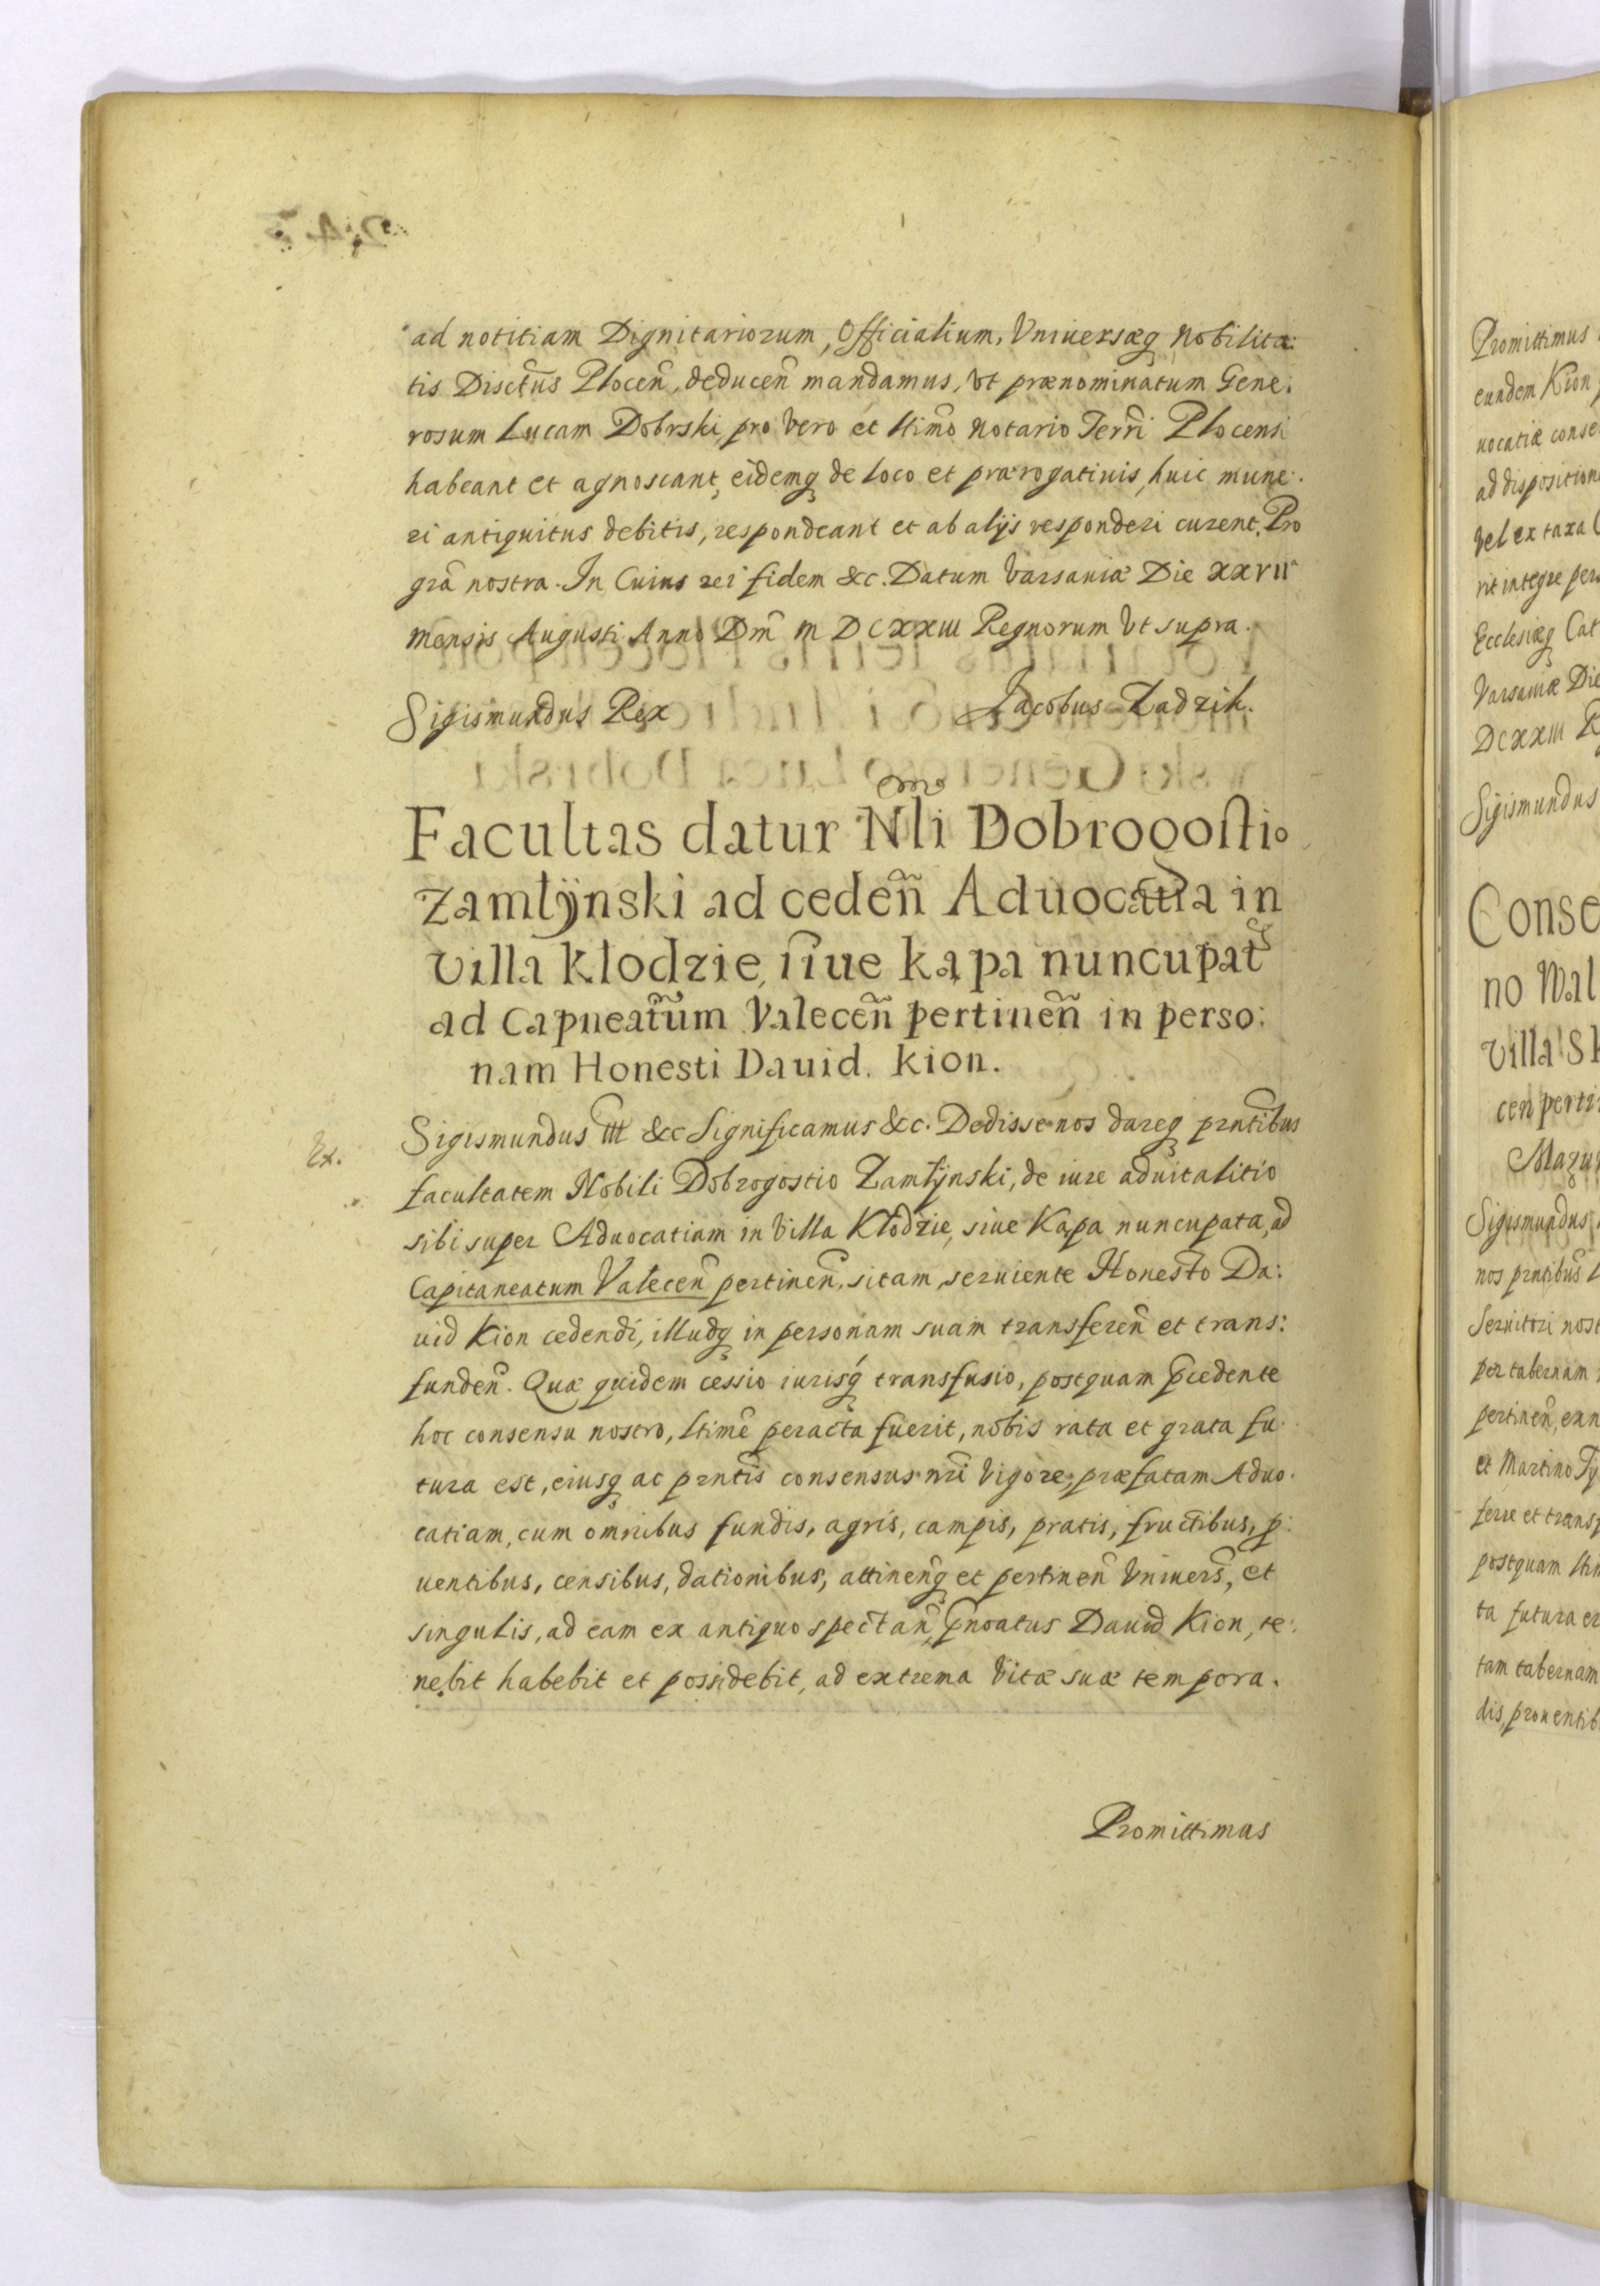 ad notitiam Dignitariorum, Officialium, Vniuersæq Nobilita:
tis Disctus Plocen, deducen mandamus, vt prænominatum Gene:
rosum Lucam Dobrski, pro vero et ltimo Notario Terri Plocensi
habeant et agnoscant, eidemq de loco et prærogatiuis, huic mune:
ri antiquitus debitis, respondeant et ab alijs responderi curent. Pro
gra nostra. In Cuius rei fidem &c. Datum Varsauiæ Die XXVII
mensis Augusti Anno Dni M DCXXIII Regnorum vt supra.
Sigismundus Rex Jacobus Zadzik.
Facultas datur Nli Dobrogostio
Zamłÿnski ad ceden Aduocatia in
villa Kłodzie, siue Kąpa nuncupat
ad Capneatum Valecen pertinen in perso:
nam Honesti Dauid. Kion.
Ex.
Sigismundus III &c Significamus &c. Dedisse nos dareq prntibus
facultatem Nobili Dobrogostio Zamłÿnski, de iure aduitalitio
sibi super Aduocatiam in villa Kłodzie, siue Kąpa nuncupata, ad
Capitaneatum Valecen pertinen, sitam, seruiente Honesto Da:
uid Kion cedendi, illudq in personam suam transferen et trans:
funden. Quæ quidem cessio iurisq transfusio, postquam pcedente
hoc consensu nostro, ltime peracta fuerit, nobis rata et grata fu:
tura est, eiusq ac prntis consensus nri vigore, præfatam Aduo:
catiam, cum omnibus fundis, agris, campis, pratis, fructibus, p:
uentibus, censibus, dationibus, attinenq et pertinen vniuers, et
singulis, ad eam ex antiquo spectan, pnoatus Dauid Kion, te:
nebit habebit et possidebit, ad extrema vitæ suæ tempora.
Promittimus
Promittimus
eundem Kion
uocatiæ conse
ad disposition
vel ex taxa
rit integre per
Ecclesiæq Cat
Varsauiæ Die
DCXXIII
Sigismundus
Conse
no Wal
villa Sk
cen perti
Mazur
Sigismundus
nos prntibus
Seruitori nost
per tabernam
pertinen, exn
et Martino Ty
ferre et transf
postquam ltim
ta futura e
tam tabernam
dis, prouentib